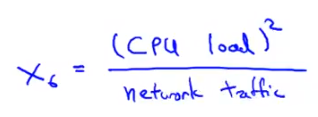 x₆ = (CPU load)² / network taffic